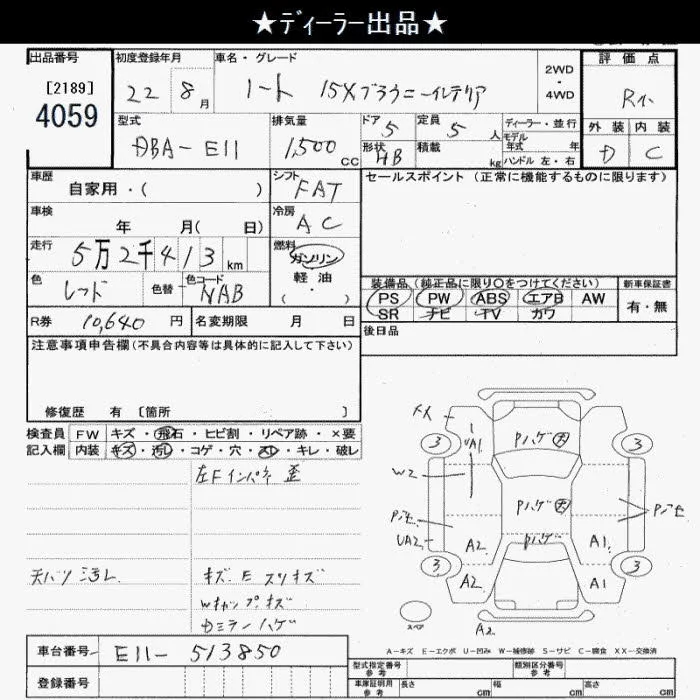 ★ディーラー出品★
出品番号
[2189]
4059
初度登録年月
22 8月
車名・グレード
ノート 15Xブラウニーインテリア
2WD
・
4WD
評価点
R小
外装 内装
D C
型式
DBA-E11
排気量
1,500 cc
ドア
5
形状
HB
定員
5 人
積載
kg
ディーラー・並行
モデル年式 年
ハンドル 左・右
車歴
自家用・( )
シフト
FAT
車検
年 月( 日)
冷房
AC
走行
5万2千413 km
燃料
ガソリン
軽油
( ・ )
色
レッド
色替
色コード
NAB
R券 10,640 円
名変期限 月 日
セールスポイント(正常に機能するものに限ります)
装備品(純正品に限り○をつけてください)
PS PW ABS エアB AW
SR ナビ TV カワ
新車保証書
有・無
後日品
注意事項申告欄(不具合内容等は具体的に記入して下さい)
修復歴 有 [箇所 ]
検査員記入欄
FW キズ・飛石・ヒビ割・リペア跡・×要
内装 キズ・汚れ・コゲ・穴・スレ・キレ・破レ
左Fインパネ 歪
天バリ 汚レ
キズ E スリキズ
Wキャップキズ
Dミラーハゲ
XX
3
UA1
Pハゲ大
3
W2
Pハゲ大
Pハゲ
UA2
A2
A1
3
A2
A1
3
スペア
A2
A-キズ E-エクボ U-凹み W-補修跡 S-サビ C-腐食 XX-交換済
車台番号 E11-513850
登録番号
型式指定番号
参考
類別区分番号
参考
車庫証明用
参考
長さ cm 幅 cm 高さ cm